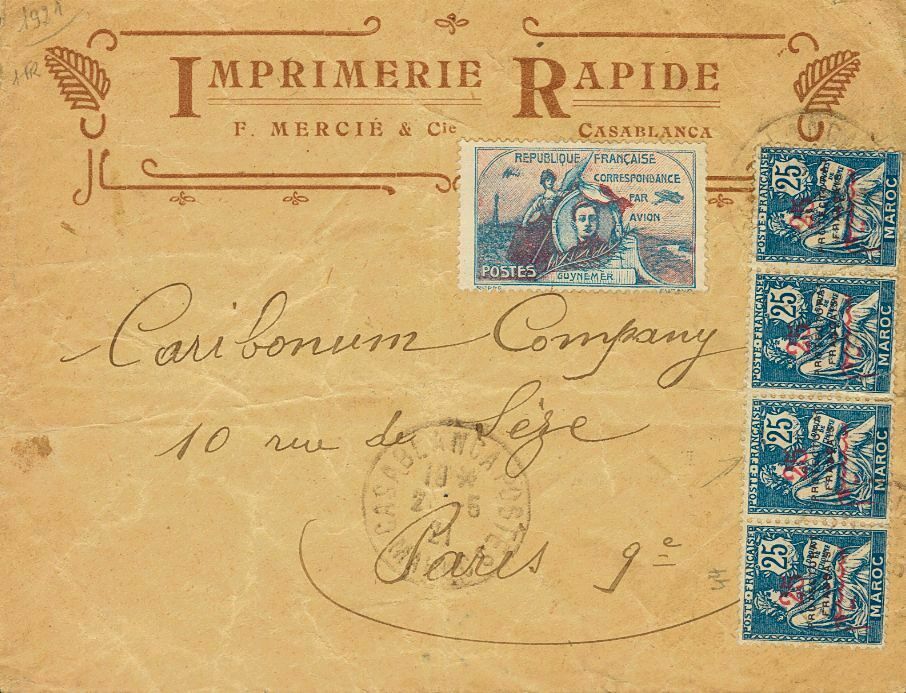 1921
1 FR
IMPRIMERIE RAPIDE
F. MERCIÉ & Cie CASABLANCA
REPUBLIQUE FRANÇAISE
CORRESPONDANCE
PAR
AVION
POSTES
GUYNEMER
POSTE FRANÇAISE
25
25
MAROC
POSTE FRANÇAISE
25
25
MAROC
POSTE FRANÇAISE
25
25
MAROC
POSTE FRANÇAISE
25
25
MAROC
Caribonum Company
10 rue de Sèze
Paris 9e
CASABLANCA POSTE